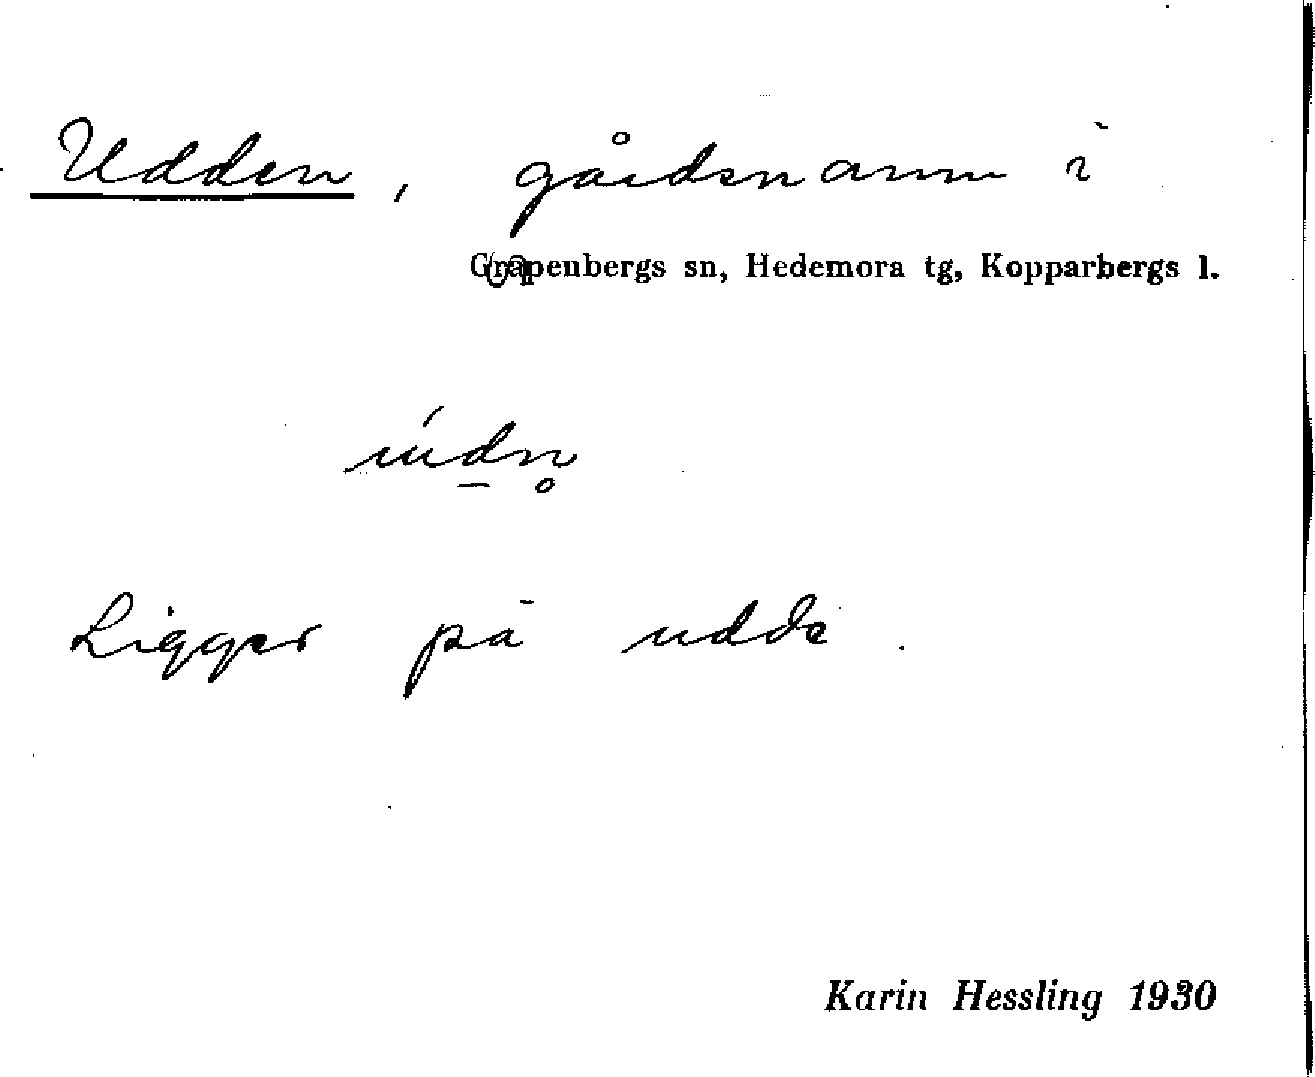 Udden, gårdsnamn i
Grapenbergs sn, Hedemora tg, Kopparbergs l.
údn̥
Ligger på udde.
Karin Hessling 1930